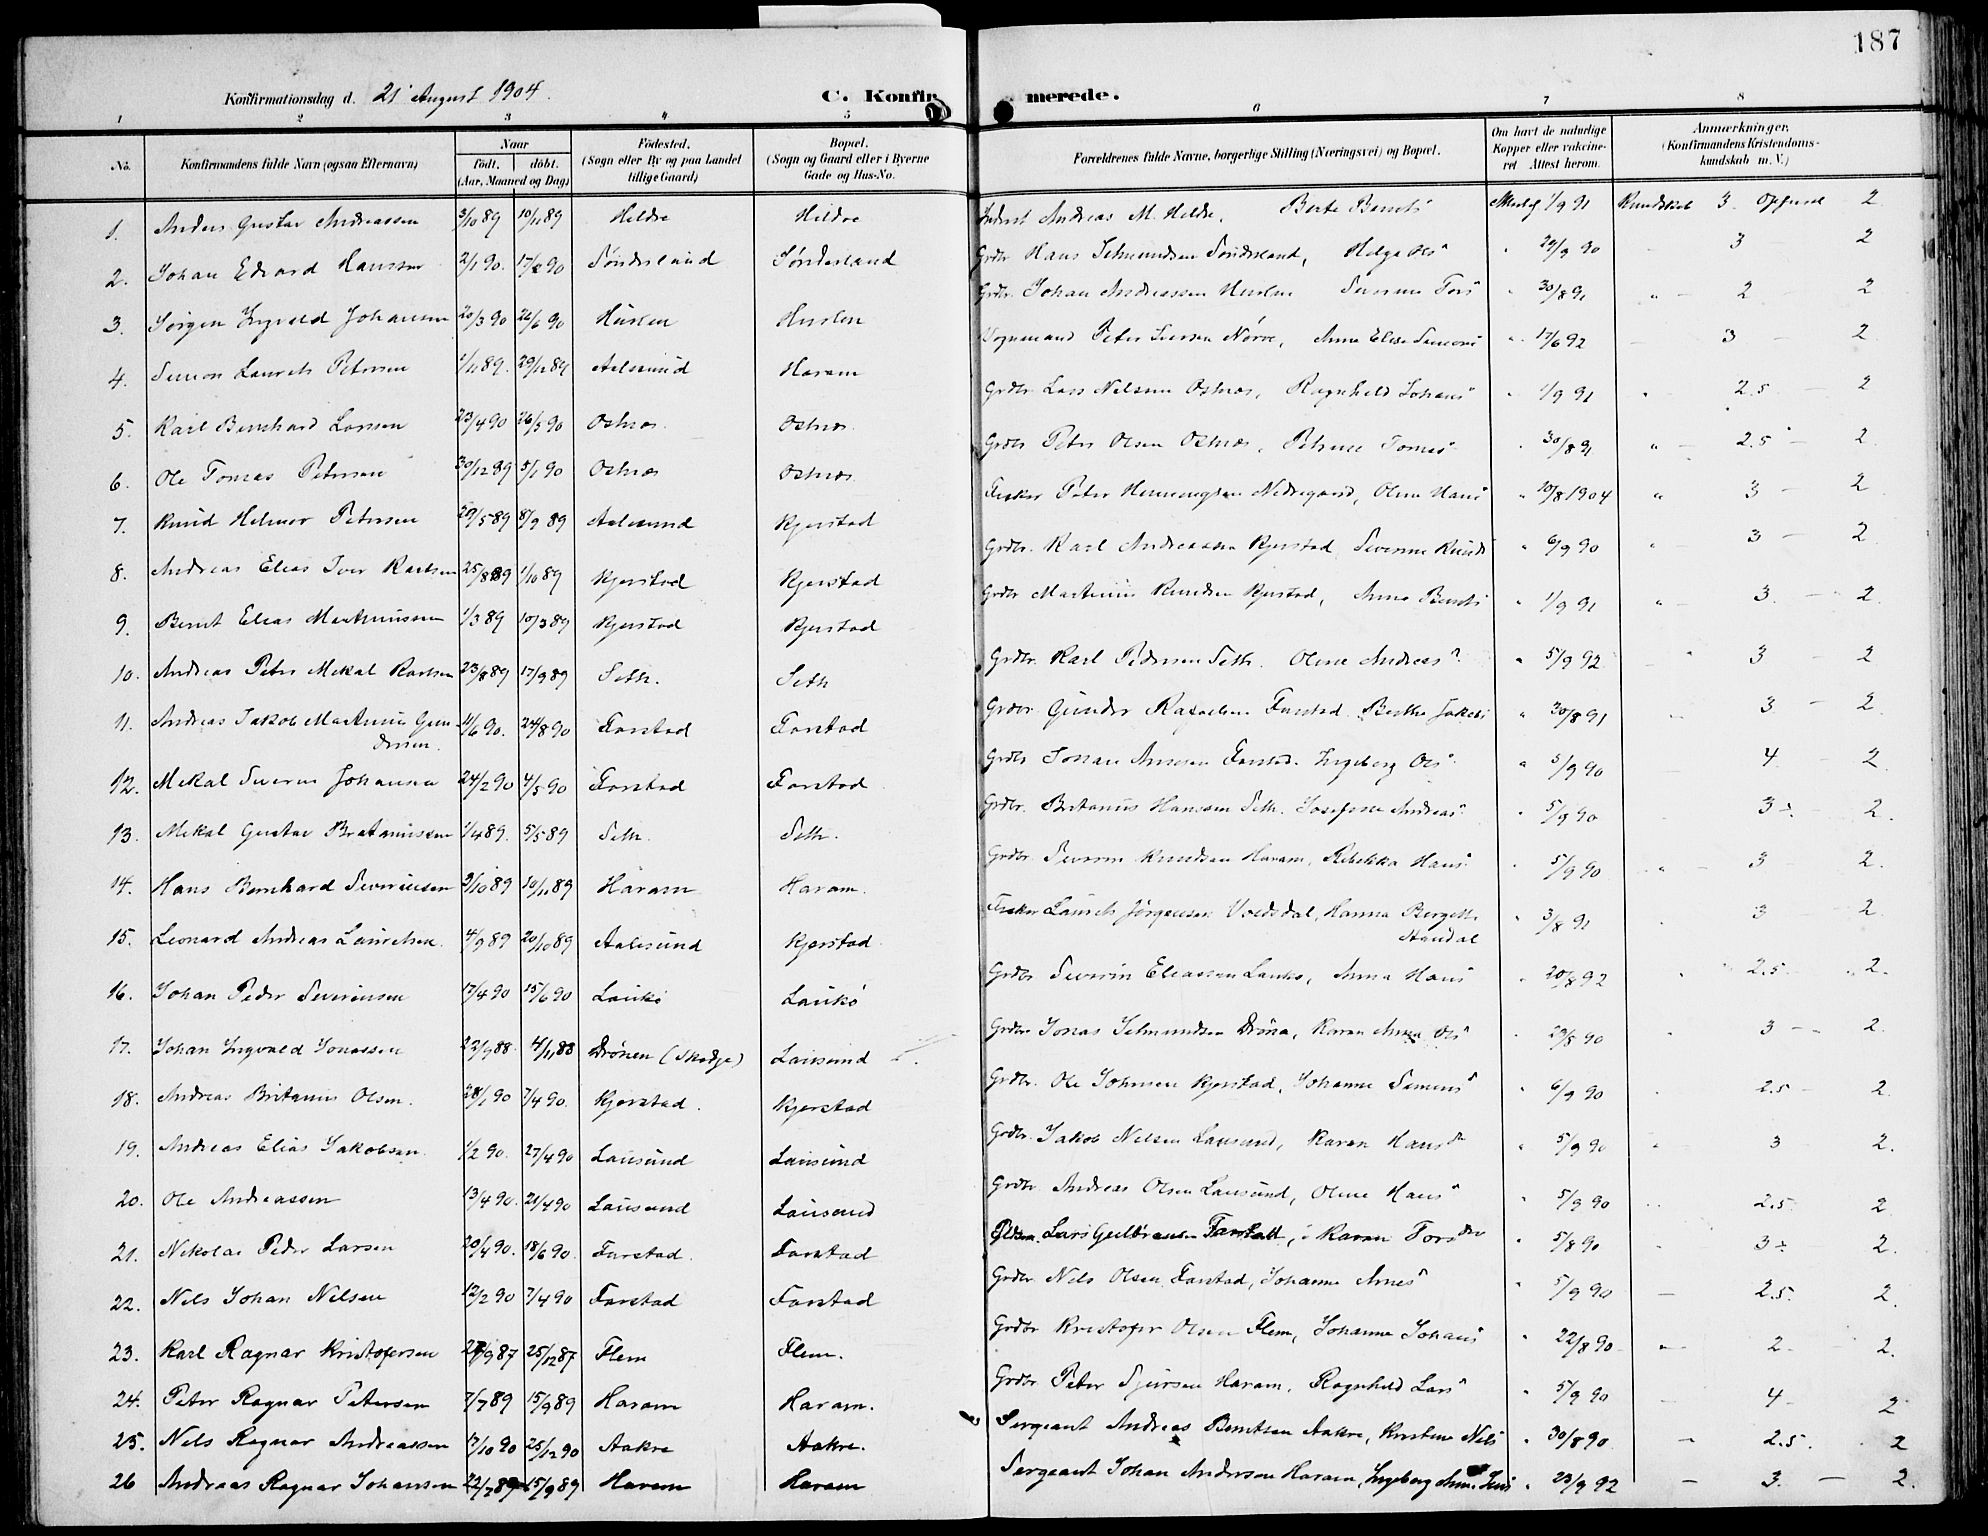 187
Konfirmationsdag d. 21 August 1904.
C. Konfirmerede.
1 2 3 4 5 6 7 8
No. Konfirmandens fulde Navn (ogsaa Efternavn) Naar født. døbt. (Aar, Maaned og Dag) Fødested. (Sogn eller By og paa Landet tillige Gaard) Bopæl. (Sogn og Gaard eller i Byerne Gade og Hus-No. Forældrenes fulde Navne, borgerlige Stilling (Næringsvei) og Bopæl. Om havt de naturlige Kopper eller vaccineret. Attest herom. Anmærkninger. (Konfirmandens Kristendomskundskab m. V.)
1. Anders Gustav Andreassen 3/10 89 10/11 89 Hildre Hildre Andreas M. Hildre, Berte Bernts 1/9 91 Kundskab 3. Opførsel 2.
2. Johan Edvard Hanssen 2/1 90. 17/2 90 Sønderland Sønderland Grdbr. Hans Selmundsen Sønderland, Helga Ols" 29/9 90 3 2
3. Jørgen Ingvald Johansen 20/3 90 26/6 90 Huslen Huslen Grdbr. Johan Andreassen Huslen Severine Tors" 30/8 91 2 2
4. Simon Laurits Petersen 1/11 89. 29/12 89 Aalesund Haram Vognmand Peter Iversen Nørve, Anna Elise Simons 17/6 92 3 2
5. Karl Bernhard Larsen 23/4 90 26/5 90 Ostnes Ostnes Grdbr. Lars Nilssen Ostnes, Ragnhild Johans" 1/9 91 2.5 2
6. Ole Tomas Petersen 30/12 89 5/1 90 Ostnes Ostnes Grdbr. Peter Olsen Ostnes, Petrine Tomas" 30/8 91 2.5 2.
7. Knud Helmer Petersen 29/5 89 8/9 89 Aalesund Kjerstad Fisker Peter Henningsen Nedregaard, Oline Hans" 20/8 1904 3 2
8. Andreas Elias Iver Karlsen 25/8 89 1/10 89 Kjerstad Kjerstad Grdbr. Karl Andreassen Kjerstad Severine Knuds 6/9 90 3 2
9. Bernt Elias Martinussen 1/3 89 10/3 89 Kjerstad Kjerstad Grdbr Martinus Knudsen Kjerstad, Anna Bernts 1/9 91 3. 2.
10. Andreas Peter Mekal Karlsen 23/8 89 17/9 89 Seth. Seth Grdbr. Karl Pedersen Seth. Oline Andreas" 5/9 92 3 2
11. Andreas Jakob Martinus Gundersen. 11/6 90. 24/8 90 Farstad Farstad Grdbr Gunder Rafaelsen Farstad. Berthe Jakobs 30/8 91 3 2.
12. Mekal Severin Johansen 24/2 90 4/5 90 Farstad Farstad Grdbr Johan Farstad. Ingeborg Ols" 5/9 90 4 2.
13. Mekal Gustav Bratanussen 1/4 89. 5/5 89 Seth. Seth. Grdbr. Britanus Hanssen Seth. Josefine Andreas" 5/9 90 3÷ 2.
14. Hans Bernhard Severinsen 9/10 89 10/11 89 Haram Haram. Grdbr. Severin Knudsen Haram, Rebekka Hans" 5/9 90 3 2.
15. Leonard Andreas Lauritsen. 4/9 89 20/10 89 Aalesund Kjerstad Fisker Laurits Jørgensen Voldsdal, Hanna Bergitte Standal 3/8 91 3 2.
16. Johan Peder Severinsen 17/4 90 15/6 90 Laukø Laukø Grdbr Severin Eliassen Laukø, Anna Hans" 20/8 92 2.5 2.
17. Johan Ingvald Jonassen 22/9 88 4/11 88 Drønen (Skodje) Lausund Grdbr Jonas Selmundsen Drøna, Karen Anna Ols" 29/8 90 3 2.
18. Andreas Britanus Olsen. 28/1 90 7/4 90. Kjerstad. Kjerstad Grdbr. Ole Johnsen Kjerstad, Johanne Simens" 6/9 90 2.5 2.
19. Andreas Elias Jakobsen. 1/2 90. 27/4 90 Lausund Lausund Grdbr. Jakob Nilsen Lausund, Karen Hans 5/9 90 3 2.
20. Ole Andreassen 13/4 90. 21/4 90 Lausund Lausund Grdbr Andreas Olsen Lausund, Oline Hans" 5/9 90 2.5. 2
21. Nikolai Peder Larsen 20/4 90. 18/6 90. Farstad. Farstad Lars Gulbransen Farstad, Karen Tors 5/8 90 3÷ 2.
22. Nils Johan Nilsen 12/2 90 7/4 90 Farstad Farstad Grdbr. Nils Olsen Farstad, Johanne Arnes" 5/9 90 2.5. 2.
23. Karl Ragnar Kristofersen 27/9 87 25/12 87 Flem Flem. Grdbr Kristofer Olsen Flem, Johanna Johans" 22/8 90 2 2.
24. Peter Ragnar Petersen 7/7 89 15/9 89 Haram Haram. Grdbr. Peter Sjursen Haram, Ragnhild Lars" 5/9 90 4 2
25. Nils Ragnar Andreassen 17/10 90 25/12 90 Aakre Aakre. Sergeant Andreas Berntsen Aakre, Kristine Nils" 30/8 90. 2.5. 2
26 Andreas Ragnar Johansen 22/7 89 15/9 89 Haram Haram Sergeant Johan Andersen Haram, Ingeborg Anna 23/9 92 3. 2.